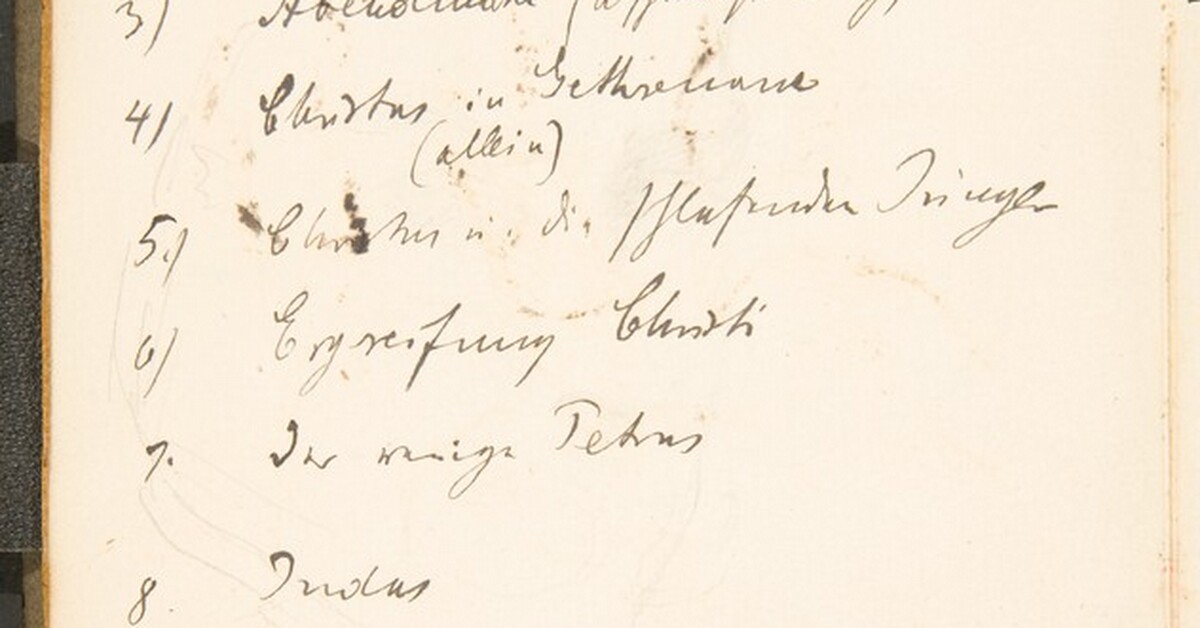 3) Abendmahl
4) Christus in Gethsemane
(allein)
5.) Christus u. die schlafenden Jünger
6) Ergreifung Christi
7. Der reuige Petrus
8. Judas